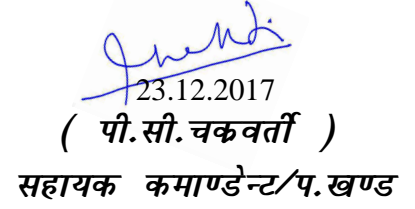 23.12.2017
( पी.सी.चकवर्ती )
सहायक कमाण्डेन्ट/प.खण्ड